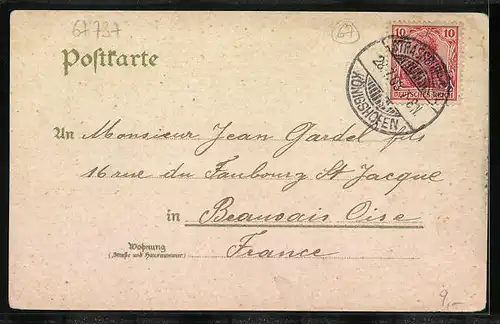 67737
67
Postkarte
10 10
DEUTSCHES REICH
STRASSBURG
KÖNIGSHOFEN
An Monsieur Jean Gardel fils
16 rue du Faubourg St Jacque
in Beauvais Oise
Wohnung
(Straße und Hausnummer)
France
9,-